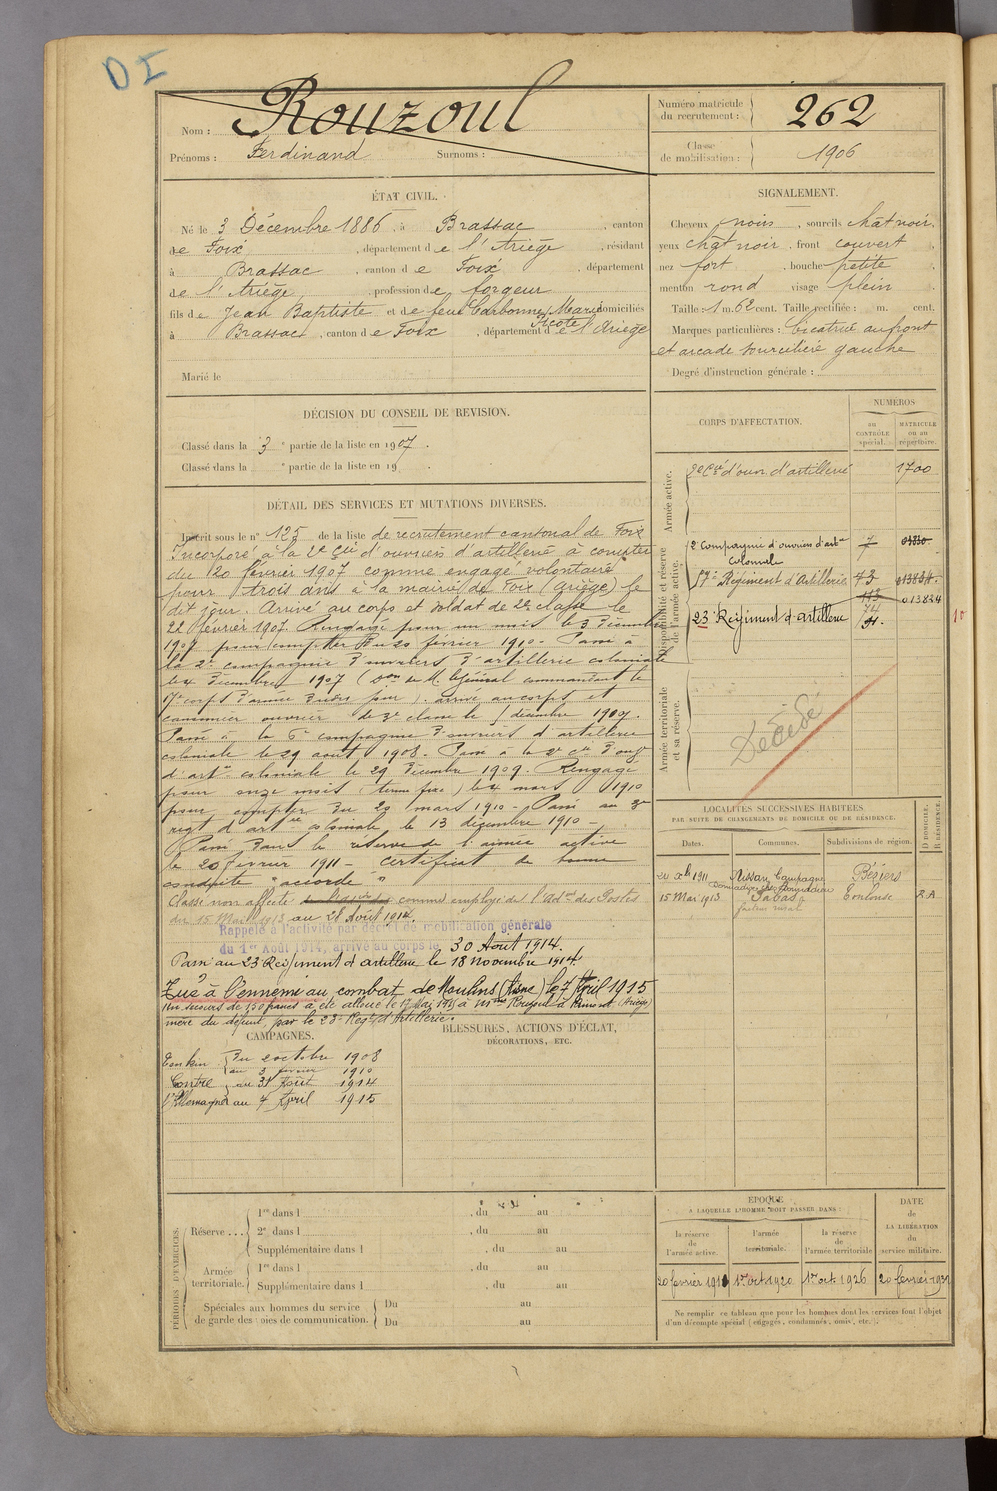 DI
Nom : Rouzoul
Prénoms : Ferdinand Surnoms :
Numéro matricule du recrutement : 262
Classe de mobilisation : 1906
ÉTAT CIVIL.
Né le 3 Décembre 1886, à Brassac, canton
de Foix, département de l'Ariège, résidant
à Brassac, canton de Foix, département
de l'Ariège, profession de forgeur
fils de Jean Baptiste et de feue Carbonne, Marie domiciliés
Picote
à Brassac, canton de Foix, département de l'Ariège
Marié le
SIGNALEMENT.
Cheveux noirs, sourcils chât noir,
yeux chât noir, front couvert,
nez fort, bouche petite,
menton rond visage plein
Taille : 1 m. 62 cent. Taille rectifiée : m. cent.
Marques particulières : Cicatrice au front
et arcade sourcilière gauche
Degré d'instruction générale :
DÉCISION DU CONSEIL DE REVISION.
Classé dans la 3 e partie de la liste en 1907.
Classé dans la e partie de la liste en 19 .
CORPS D'AFFECTATION.
NUMÉROS
au CONTRÔLE spécial.
MATRICULE ou au répertoire.
Armée active.
2e Cie d'ouv. d'artillerie 1700
Disponibilité et réserve de l'armée active.
2e Compagnie d'ouvriers d'artie 7
coloniale
17e Régiment d'Artillerie 73
113 013824
23 Régiment d'artillerie 74
Armée territoriale et sa réserve.
Décédé
DÉTAIL DES SERVICES ET MUTATIONS DIVERSES.
Inscrit sous le n° 125 de la liste de recrutement cantonal de Foix
Incorporé à la 2e Cie d'ouvriers d'artillerie à compter
du 20 février 1907 comme engagé volontaire
pour trois ans à la mairie de Foix (Ariège) le
dit jour. Arrivé au corps et soldat de 2e classe le
22 février 1907. Rengagé pour un mois le 3 Décembre
1907 pour compter du 20 février 1910 - Passé à
la 2e compagnie d'ouvriers d'artillerie coloniale
le 4 Décembre 1907 (Don de M. le Général commandant le
17e corps d'armée dudit jour), arrivé au corps et
canonnier ouvrier de 2e classe le décembre 1907.
Passé à la 6e compagnie d'ouvriers d'artillerie
coloniale le 29 août 1908. Passé à la 2e Cie d'ouvrs
d'artie coloniale le 29 Décembre 1909. Rengagé
pour onze mois (terme fixe) le 4 mars 1910
pour compter du 20 mars 1910 - Passé au 3e
regt d'artie coloniale le 13 décembre 1910 -
Passé dans la réserve de l'armée active
le 20 Février 1911 - certificat de bonne
conduite "accordé"
Classé non affecté comme employé de l'Adon des Postes
du 15 Mai 1913 au 28 Août 1914.
Rappelé à l'activité par décret de mobilisation générale
du 1er Août 1914, arrivé au corps le 30 Août 1914.
Passé au 23e Régiment d'artillerie le 18 novembre 1914
Tué à l'ennemi au combat de Moulins (Aisne) le 7 Avril 1915
Un secours de 150 francs a été alloué le 17 Mai 1915 à Mme Rouzoul à Rimont (Ariège)
mère du défunt, par le 23e Regt d'Artillerie.
LOCALITÉS SUCCESSIVES HABITÉES
PAR SUITE DE CHANGEMENTS DE DOMICILE OU DE RÉSIDENCE.
Dates. Communes. Subdivisions de région. D. DOMICILE. R. RÉSIDENCE.
1911 Nissan, Campagne Béziers
15 Mai 1913 Sabarat Toulouse R.A
facteur rural
CAMPAGNES.
Tonkin du 2 octobre 1908
au 3 février 1910
Contre au 31 Août 1914
l'Allemagne au 7 Avril 1915
BLESSURES, ACTIONS D'ÉCLAT,
DÉCORATIONS, ETC.
PÉRIODES D'EXERCICES.
Réserve...
1re dans l , du au
2e dans l , du au
Supplémentaire dans l , du au
Armée territoriale.
1re dans l , du au
Supplémentaire dans l , du au
Spéciales aux hommes du service
de garde des voies de communication.
Du au
Du au
ÉPOQUE
À LAQUELLE L'HOMME DOIT PASSER DANS :
la réserve de l'armée active.
l'armée territoriale.
la réserve de l'armée territoriale
DATE de LA LIBÉRATION du service militaire.
20 février 1910 1er oct. 1920 1er oct. 1926 20 février 1932
Ne remplir ce tableau que pour les hommes dont les services font l'objet
d'un décompte spécial (engagés, condamnés, omis, etc.).